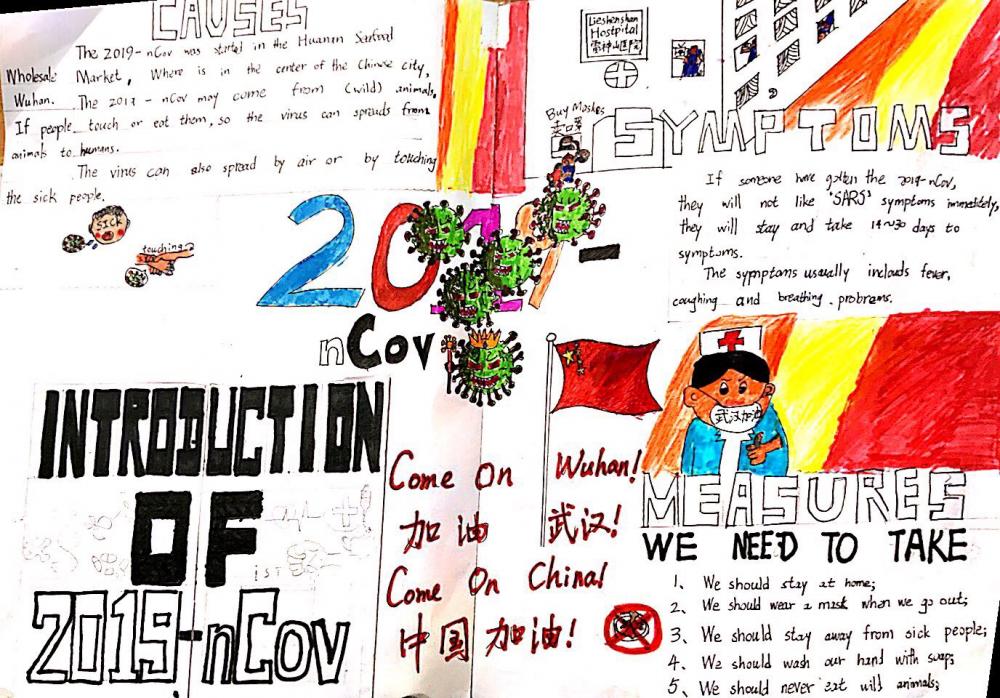 CAUSES
The 2019-nCov was started in the Huanan Seafood
Wholesale Market, Where is in the center of the Chinese city,
Wuhan. The 2019-nCov may come from (wild) animals,
If people touch or eat them, so the virus can spreads from
animals to humans.
The virus can also spread by air or by touching
the sick people.
SICK
touching
Leishenshan
Hostpital
雷神山医院
Buy Maskes
卖口罩
SYMPTOMS
If someone have gotten the 2019-nCov,
they will not like "SARS" symptoms immediately,
they will stay and take 14~30 days to
symptoms.
The sypmtoms usually includs fever,
coughing and breathing probrems.
2019-
nCov
INTRODUCTION
OF
2019-nCov
Come On Wuhan!
加油 武汉!
Come On China!
中国加油!
武汉加油
MEASURES
WE NEED TO TAKE
1、We should stay at home;
2、We should wear a mask when we go out;
3、We should stay away from sick people;
4、We should wash our hand with soap;
5、We should never eat wild animals;